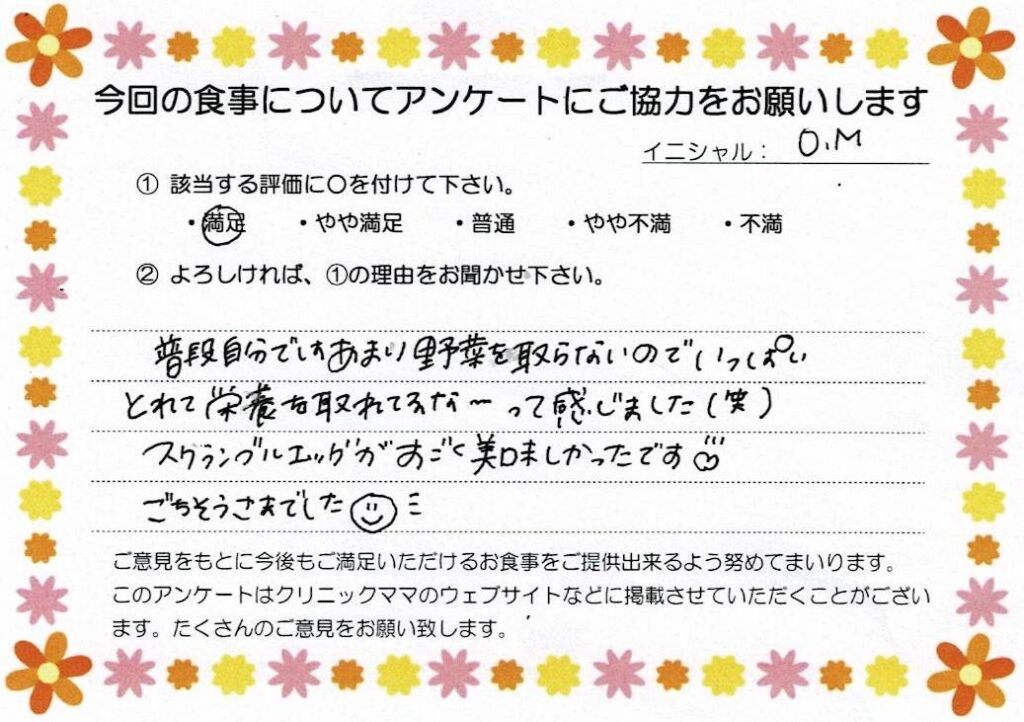 今回の食事についてアンケートにご協力をお願いします
イニシャル： O.M
① 該当する評価に〇を付けて下さい。
・満足 ・やや満足 ・普通 ・やや不満 ・不満
② よろしければ、①の理由をお聞かせ下さい。
普段自分ではあまり野菜を取らないのでいっぱい
とれて栄養を取れてるな～って感じました(笑)
スクランブルエッグがすごく美味しかったです
ごちそうさまでした
ご意見をもとに今後もご満足いただけるお食事をご提供出来るよう努めてまいります。
このアンケートはクリニックママのウェブサイトなどに掲載させていただくことがござい
ます。たくさんのご意見をお願い致します。